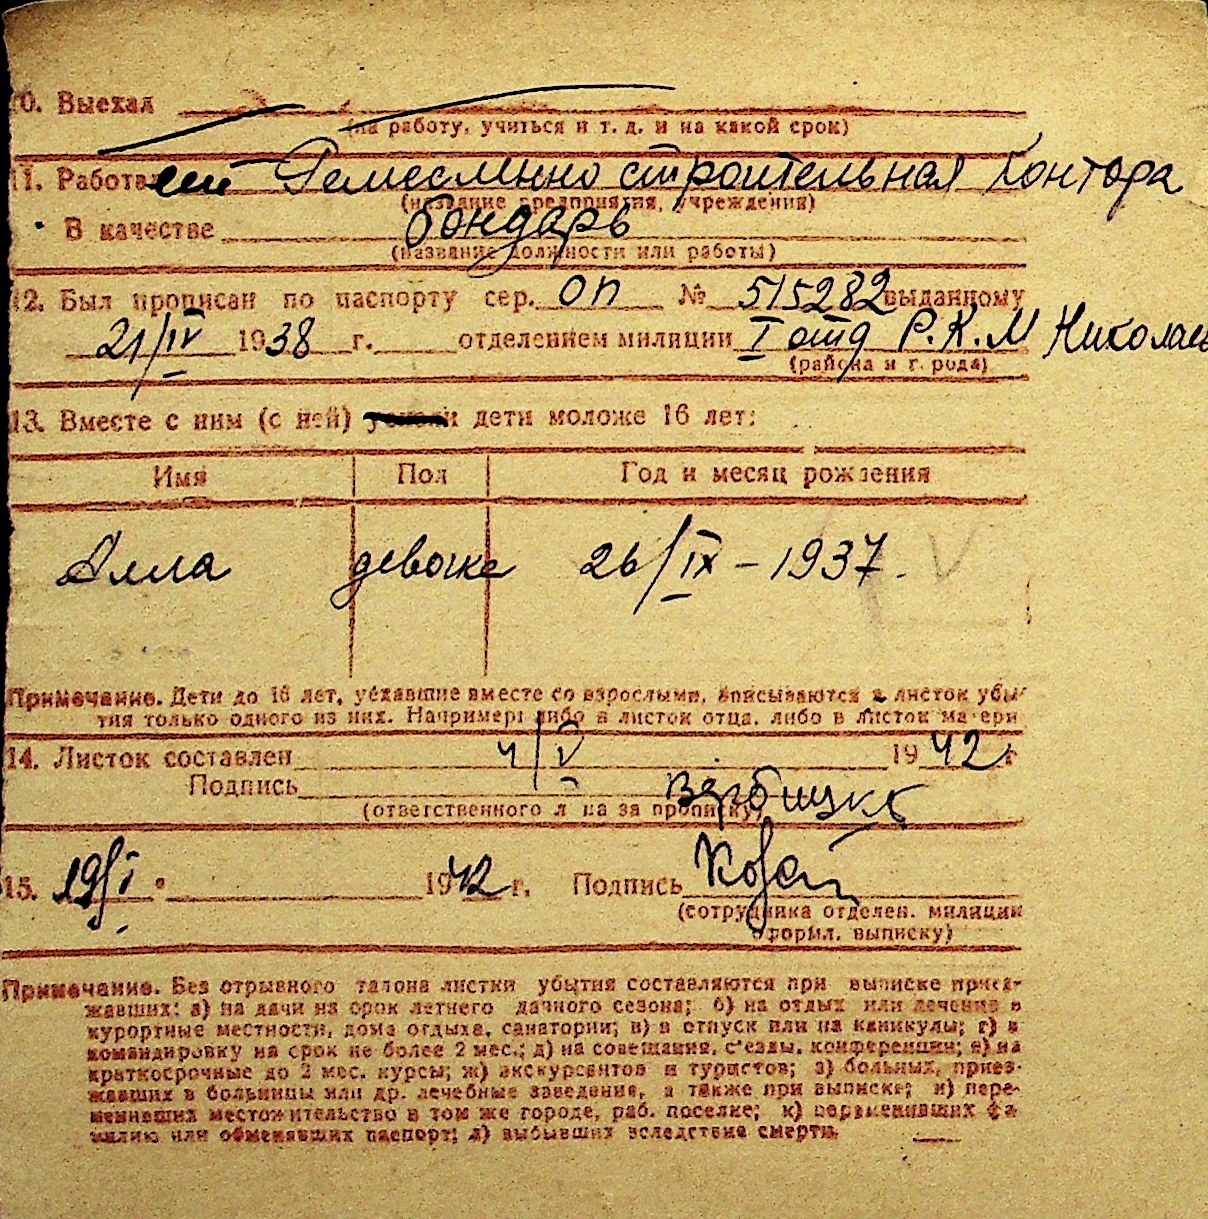 10. Выехал
(на работу, учиться и т. д. и на какой срок)
11. Работает Ремесленно строительная Контора
(название предприятия, учреждения)
В качестве бондарь
(название должности или работы)
12. Был прописан по паспорту сер. ОП № 515282 выданному
21/IV 1938 г. отделением милиции I отд Р.К.М Николаев
(района и города)
13. Вместе с ним (с ней) дети моложе 16 лет:
Имя Пол Год и месяц рождения
Алла девочке 26/IX - 1937. V
Примечание. Дети до 16 лет, уехавшие вместе со взрослыми, вписываются в листок убы-
тия только одного из них. Например: либо в листок отца, либо в листок матери
14. Листок составлен 4/V 1942 г
Подпись
(ответственного лица за прописку)
15. 19/I 1942 г. Подпись
(сотрудника отделен. милиции
оформл. выписку)
Примечание. Без отрывного талона листки убытия составляются при выписке приез-
жавших: а) на дачи на срок летнего дачного сезона; б) на отдых или лечение в
курортные местности, дома отдыха, санатории; в) в отпуск или на каникулы; г) в
командировку на срок не более 2 мес.; д) на совещания, с'езды, конференции; е) на
краткосрочные до 2 мес. курсы; ж) экскурсантов и туристов; з) больных, приез-
жавших в больницы или др. лечебные заведения, а также при выписке; и) пере-
менивших местожительство в том же городе, раб. поселке; к) переменивших фа-
милию или обменявших паспорт; л) выбывших вследствие смерти.